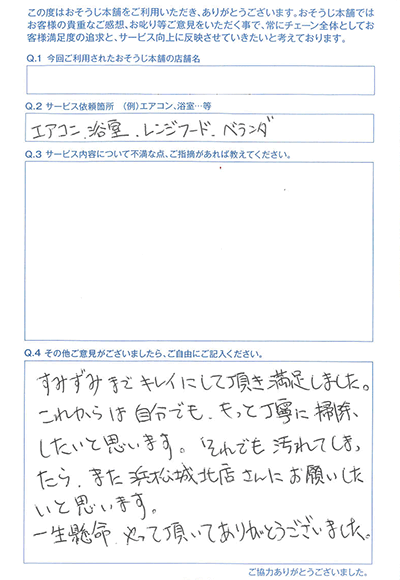 この度はおそうじ本舗をご利用いただき、ありがとうございます。おそうじ本舗では
お客様の貴重なご感想、お叱り等ご意見をいただく事で、常にチェーン全体としてお
客様満足度の追求と、サービス向上に反映させていきたいと考えております。
Q.1 今回ご利用されたおそうじ本舗の店舗名
Q.2 サービス依頼箇所 (例)エアコン、浴室…等
エアコン、浴室、レンジフード、ベランダ
Q.3 サービス内容について不満な点、ご指摘があれば教えてください。
Q.4 その他ご意見がございましたら、ご自由にご記入ください。
すみずみまでキレイにして頂き満足しました。
これからは自分でも、もっと丁寧に掃除
したいと思います。それでも汚れてしまっ
たら、また浜松城北店さんにお願いした
いと思います。
一生懸命、やって頂いてありがとうございました。
ご協力ありがとうございました。